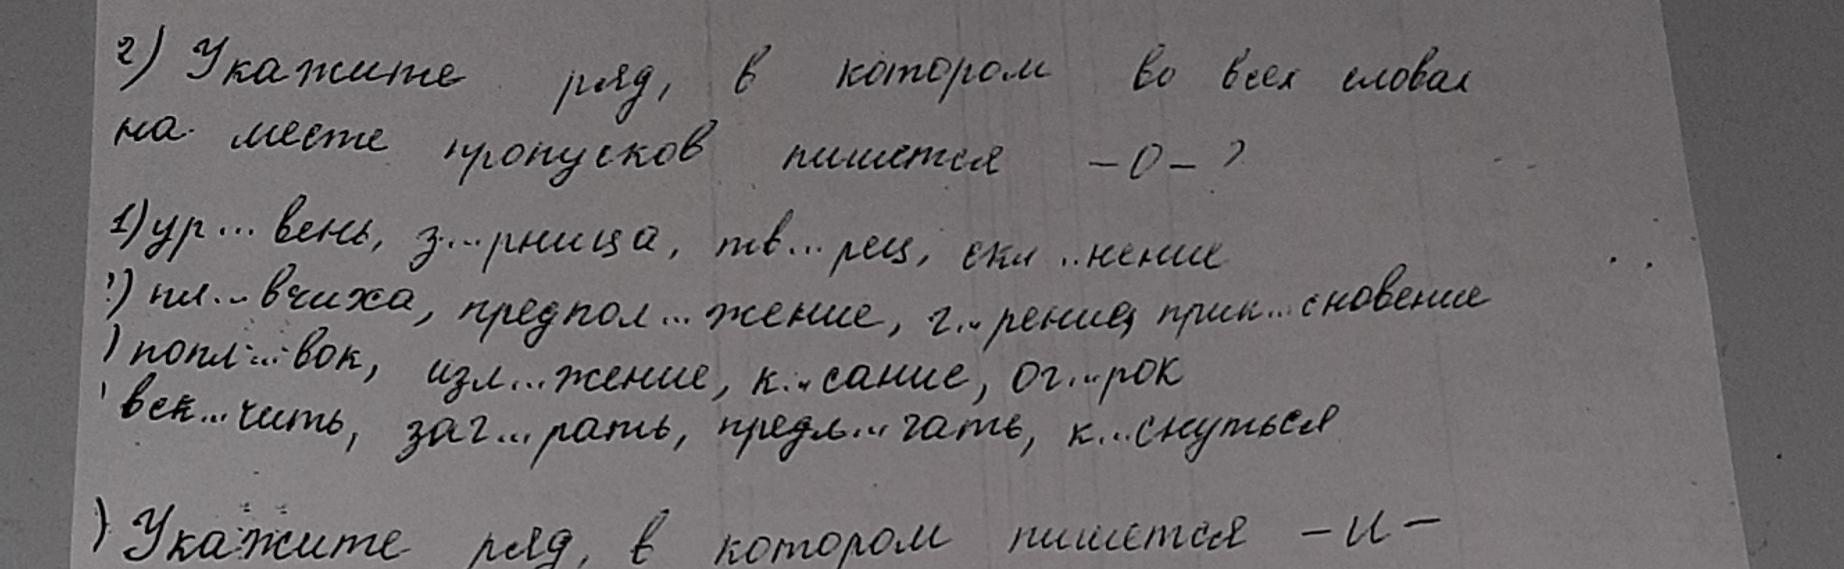 2) Укажите ряд, в котором во всех словах
на месте пропусков пишется -О- ?
1) ур...вень, з...рница, тв...рец, скл...нение
2) пл...вчиха, предпол...жение, г...рение, прик...сновение
) попл...вок, изл...жение, к...сание, ог...рок
вск...чить, заг...рать, предл...гать, к...снуться
) Укажите ряд, в котором пишется -И-